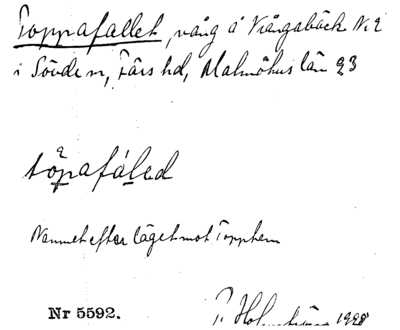 Toppafallet, vång å Vrångabäck N:2
i Sövde sn, Färs hd, Malmöhus län 23
Namnet efter läget mot Topphem
Nr 5592.
P. 1928